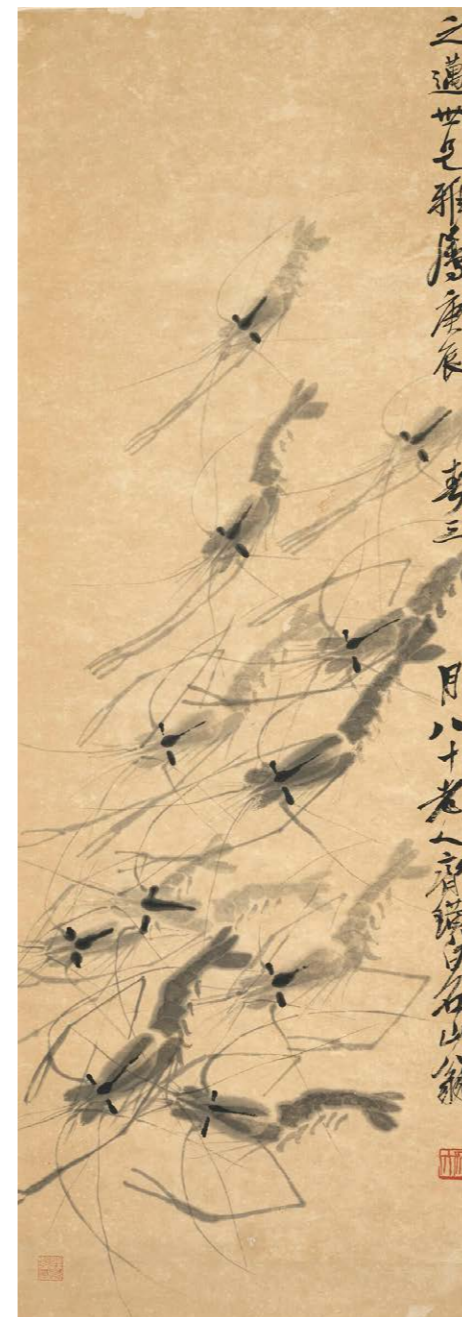 之邁世兄雅屬庚辰春三月八十老人齊璜白石山翁